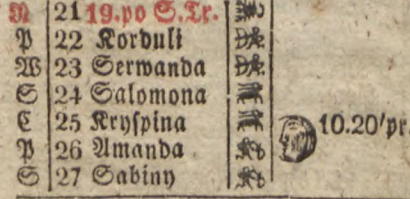 N 21 19.po S.Tr.
P 22 Korduli
W 23 Serwanda
S 24 Salomona
C 25 Kryſpina 10.20'pr
P 26 Amanda
S 27 Sabiny